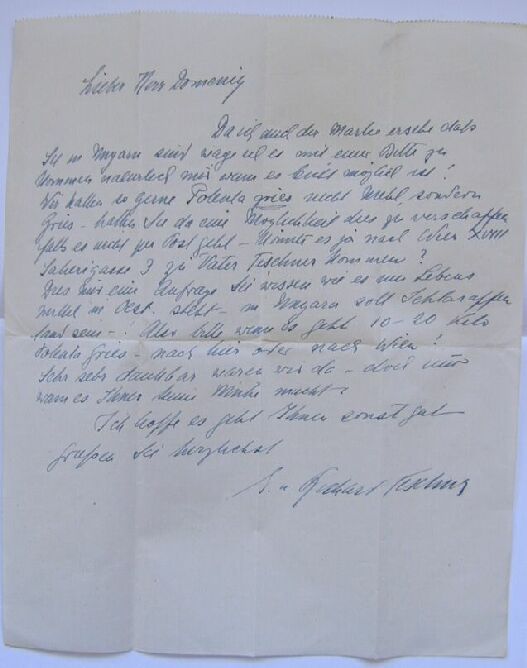 Lieber Herr Domenig
Da ich aus der Marke ersehe dass
Sie in Ungarn sind wage ich es mit einer Bitte zu
kommen natürlich nur wenn es leicht möglich ist!
Wir hätten so gerne Polenta gries nicht Mehl, sondern
Gries – hätten Sie da eine Möglichkeit dies zu verschaffen
falls es nicht per Post geht – könnte es ja nach Wien XVIII
3 zu Vater Teschner kommen?
Dies nur eine Anfrage Sie wissen wie es um Lebens
in Oest. steht – in Ungarn soll Schlaraffen
land sein –! Aber bitte wenn es geht 10–20 Kilo
Polenta Gries – nach hier oder nach Wien!
Sehr sehr dankbar wären wir da – doch nur
wenn es Ihnen keine Mühe macht.
Ich hoffe es geht Ihnen sonst gut
Grüßen Sie herzlichst
u Richard Teschner